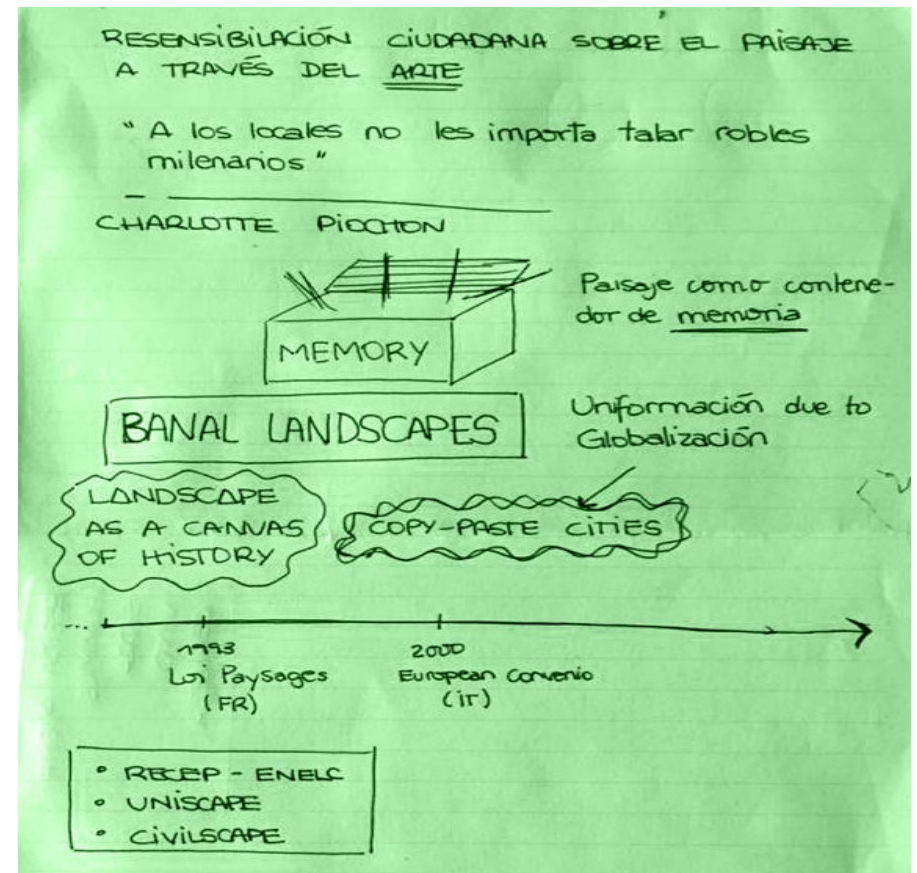 RESENSIBILACIÓN CIUDADANA SOBRE EL PAISAJE
A TRAVÉS DEL ARTE
"A los locales no les importa talar robles
milenarios"
CHARLOTTE PIOCHON
MEMORY
Paisaje como contene-
dor de memoria
BANAL LANDSCAPES
Uniformación due to
Globalización
LANDSCAPE
AS A CANVAS
OF HISTORY
COPY-PASTE CITIES
...
1993
Loi Paysages
(FR)
2000
European Convenio
(IT)
• RECEP - ENELC
• UNISCAPE
• CIVILSCAPE